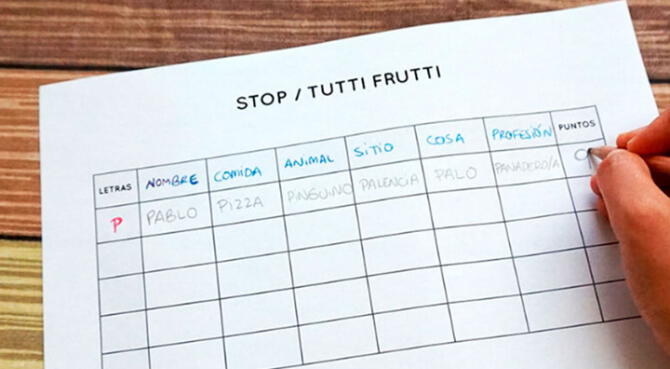 STOP / TUTTI FRUTTI
LETRAS NOMBRE COMIDA ANIMAL SITIO COSA PROFESIÓN PUNTOS
P PABLO PIZZA PINGUINO PALENCIA PALO PANADERO/A